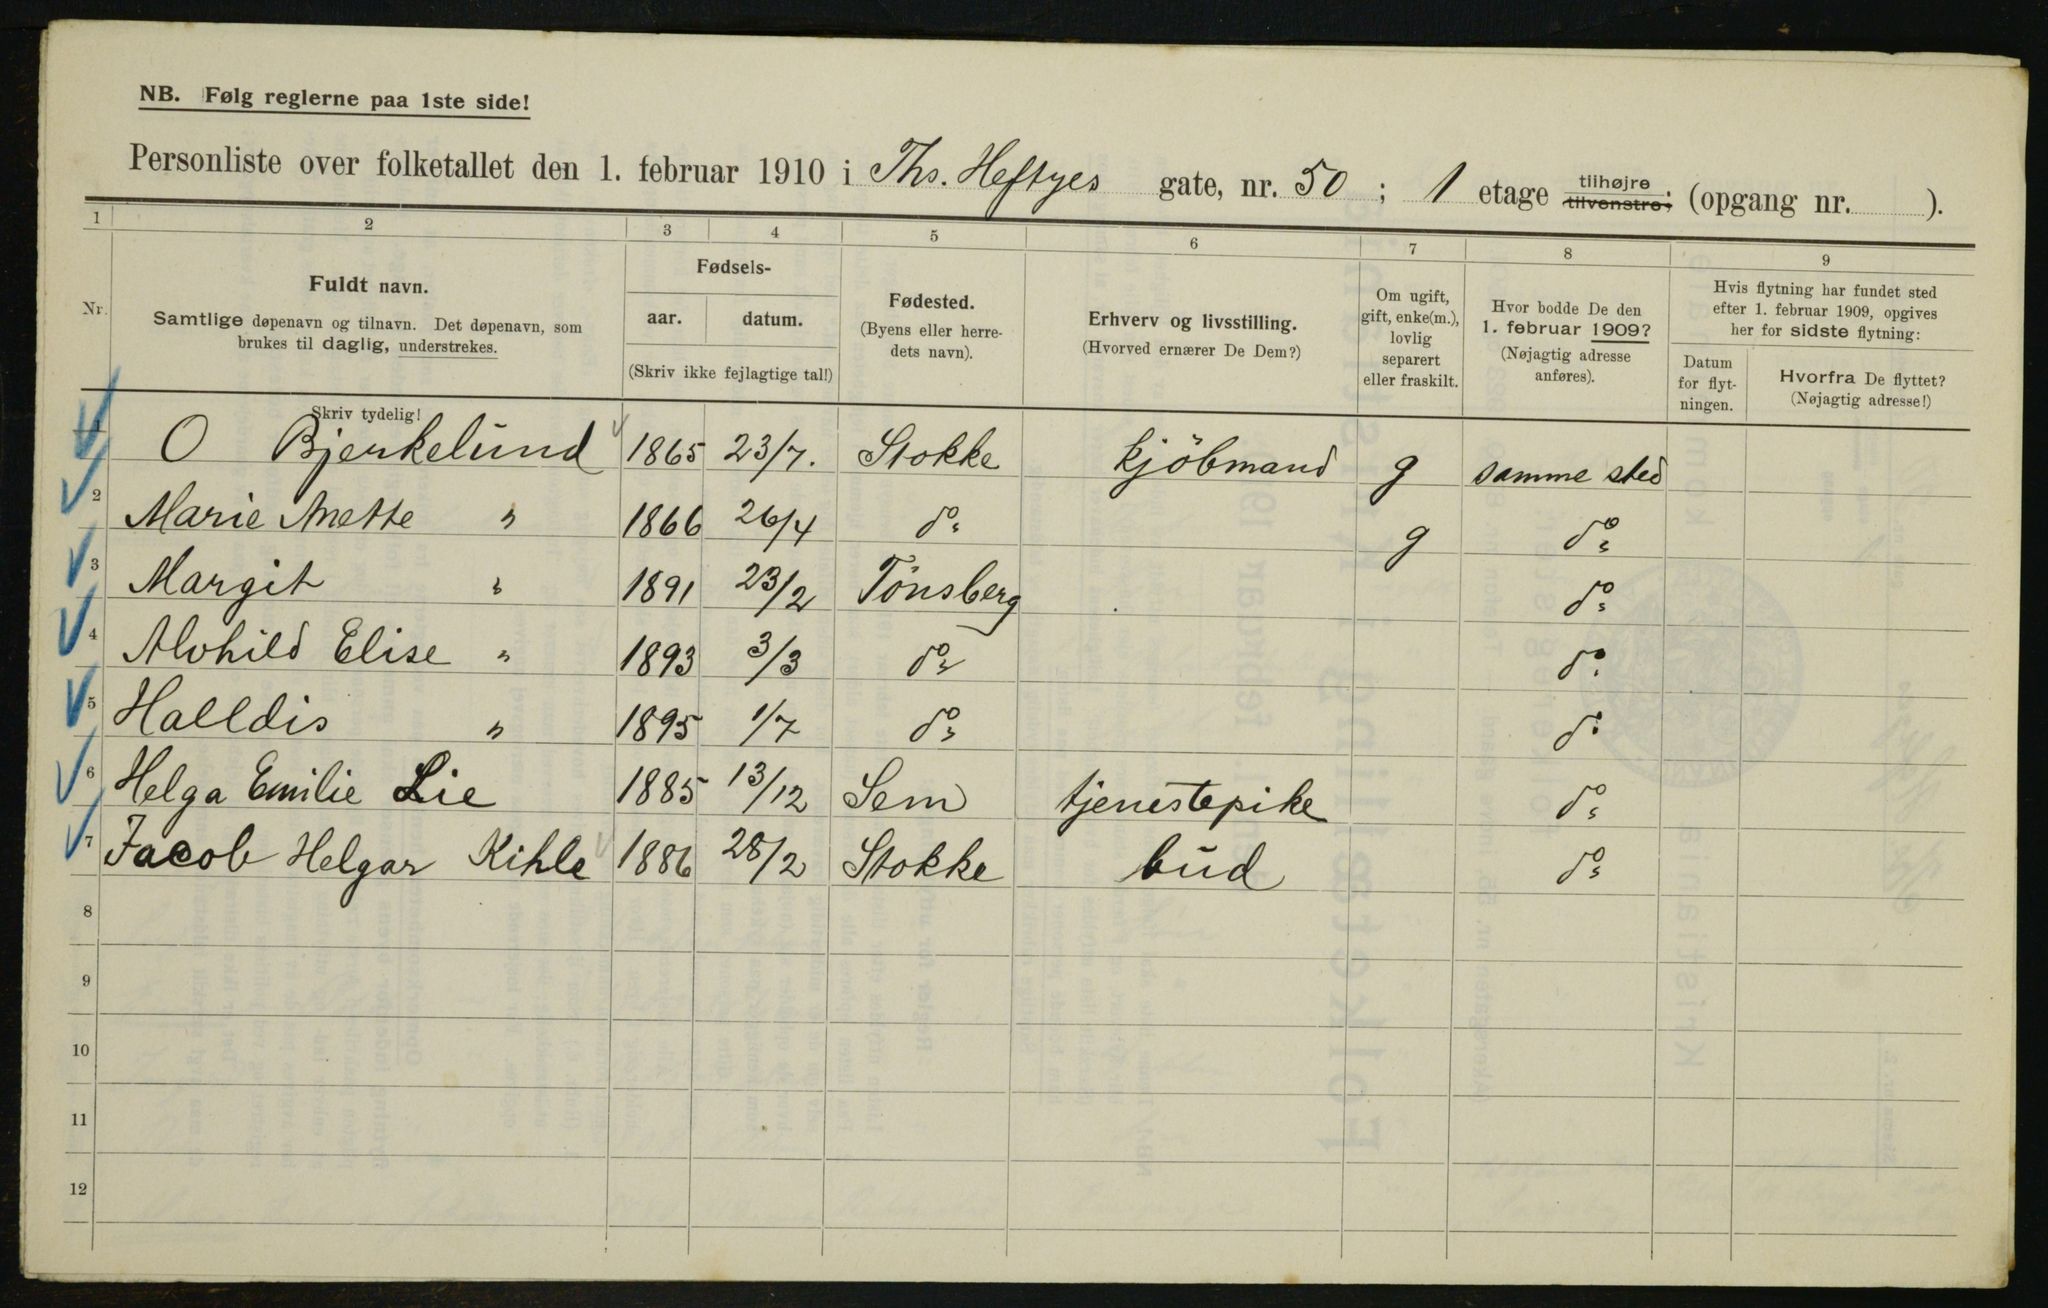 NB. Følg reglerne paa 1ste side!
Personliste over folketallet den 1. februar 1910 i Ths. Heftyes gate, nr. 50 ; 1 etage tilhøjre tilvenstre; (opgang nr. ).
1 2 3 4 5 6 7 8 9
Nr. Fuldt navn. Samtlige døpenavn og tilnavn. Det døpenavn, som brukes til daglig, understrekes.
Fødsels- aar. datum. (Skriv ikke fejlagtige tal!)
Fødested. (Byens eller herredets navn).
Erhverv og livsstilling. (Hvorved ernærer De Dem?)
Om ugift, gift, enke(m.), lovlig separert eller fraskilt.
Hvor bodde De den 1. februar 1909? (Nøjagtig adresse anføres).
Hvis flytning har fundet sted efter 1. februar 1909, opgives her for sidste flytning:
Datum for flytningen. Hvorfra De flyttet? (Nøjagtig adresse!)
Skriv tydelig!
O Bjerkelund 1865 23/7. Stokke kjöbmand g samme sted
2 Marie Anette " 1866 26/4 do g do
3 Margit " 1891 23/2 Tönsberg do
4 Alvhild Elise " 1893 3/3 do do
5 Halldis " 1895 1/7 do do
6 Helga Emilie Lie 1885 13/12 Sem tjenestepike do
7 Jacob Helgar Kihle 1886 28/2 Stokke bud do
8
9
10
11
12